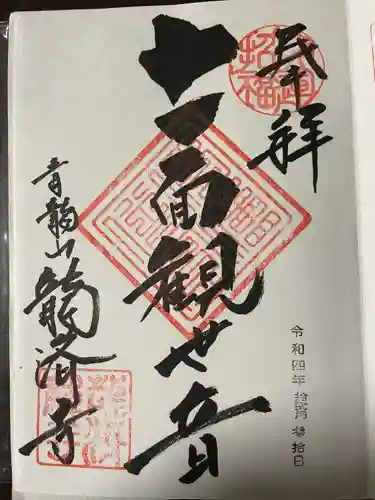 奉拝
開運
招福
十一面観世音
青龍山龍済寺
令和四年 拾弐月 参拾日